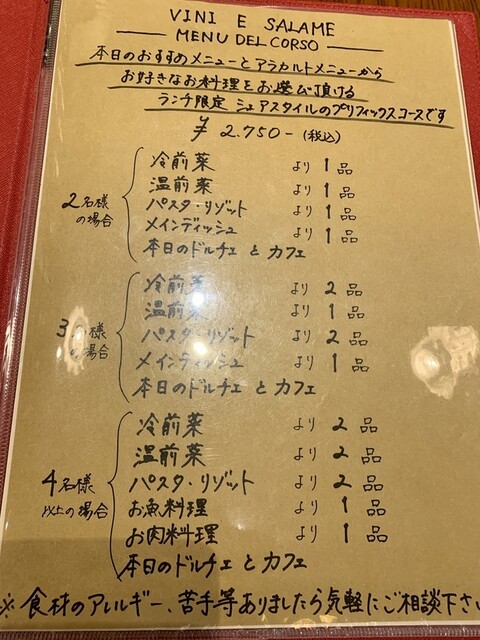 VINI E SALAME
MENU DEL CORSO
本日のおすすめメニューとアラカルトメニューから
お好きなお料理をお選び頂ける
ランチ限定 シェアスタイルのプリフィックスコースです
¥ 2.750-(税込)
2名様の場合
冷前菜 より 1品
温前菜 より 1品
パスタ・リゾット より 1品
メインディッシュ より 1品
本日のドルチェ と カフェ
3名様の場合
冷前菜 より 2品
温前菜 より 1品
パスタ・リゾット より 2品
メインディッシュ より 1品
本日のドルチェ と カフェ
4名様以上の場合
冷前菜 より 2品
温前菜 より 2品
パスタ・リゾット より 2品
お魚料理 より 1品
お肉料理 より 1品
本日のドルチェ と カフェ
※食材のアレルギー、苦手等ありましたら気軽にご相談下さい